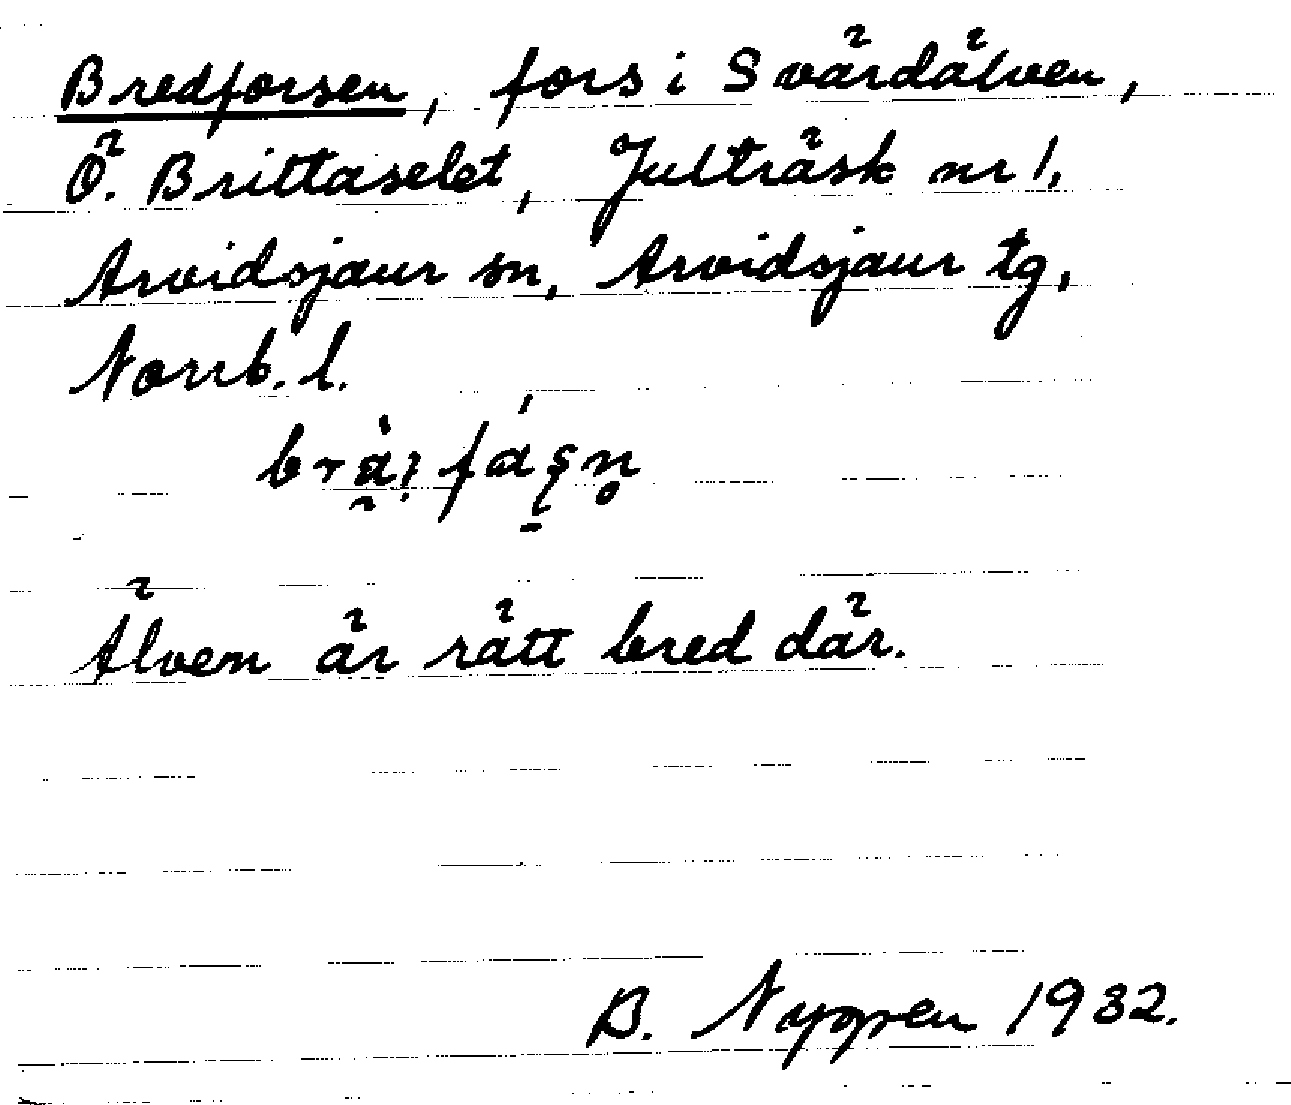 Bredforsen, fors i Svärdälven,
Ö. Brittaselet, Julträsk nr 1,
Arvidsjaur sn, Arvidsjaur tg,
Norrb. l.
Älven är rätt bred där.
B. Nygren 1932.